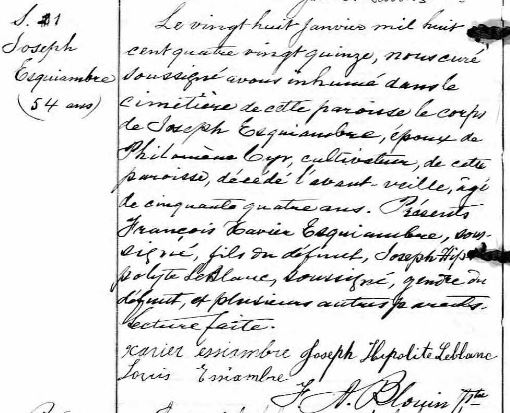 S. 21
Joseph
Esquiambre
(54 ans)
Le vingt huit Janvier mil huit
cent quatre vingt quinze, nous curé
soussigné avons inhumé dans le
cimetière de cette paroisse le corps
de Joseph Esquiambre, époux de
Philomène Cyr, cultivateur, de cette
paroisse, décédé l'avant-veille, âgé
de cinquante quatre ans. Présents
François Xavier Esquiambre, sous-
signé, fils du défunt, Joseph Hip-
polyte LeBlanc, soussigné, gendre du
défunt, et plusieurs autres parents.
Lecture faite.
xavier essiambre Joseph Hypolite Leblanc
Louis Esiambre
F. A. Blouin Ptre